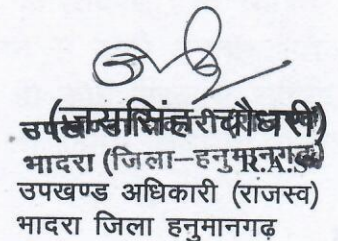 (जयसिंह चौधरी)
उपखण्ड अधिकारी
भादरा (जिला-हनुमानगढ़)
R.A.S
उपखण्ड अधिकारी (राजस्व)
भादरा जिला हनुमानगढ़